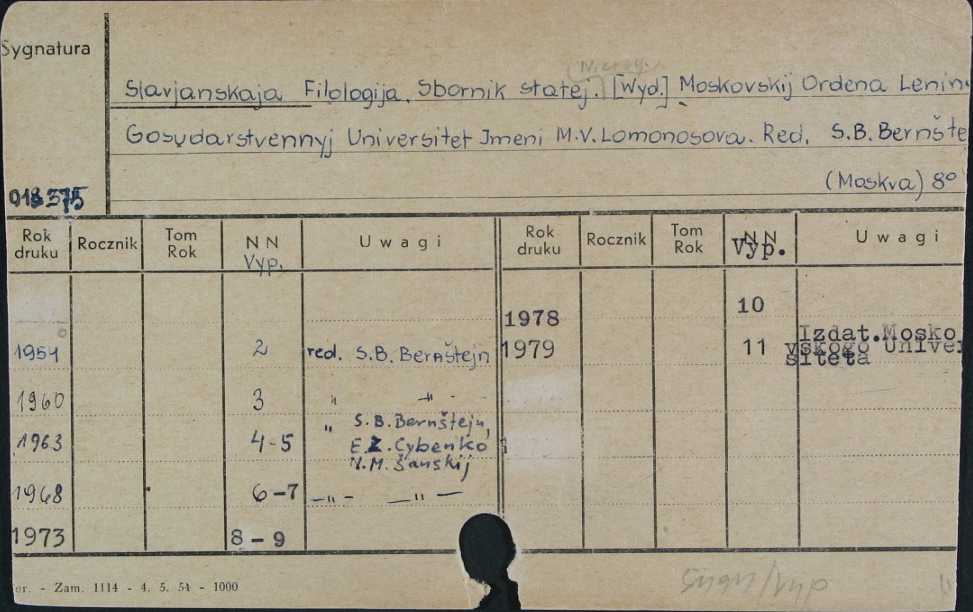 Sygnatura
Slavjanskaja Filologija. Sbornik statej. [Wyd.] Moskovskij Ordena Lenin
Gosudarstvennyj Universitet Jmeni M.V. Lomonosova. Red. S.B. Bernšte
(Moskva) 8°
018375
Rok druku Rocznik Tom Rok NN Vyp. Uwagi Rok druku Rocznik Tom Rok NN Vyp. Uwagi
1978 10
1951 2 red. S.B. Bernštejn 1979 11 Izdat.Mosko
vskogo Univer
siteta
1960 3 " -"-
1963 4-5 " S.B. Bernštejn,
E.Z. Cybenko i
N.M. Šanskij
1968 6-7 -"- -"-
1973 8-9
er. - Zam. 1114 - 4. 5. 54 - 1000